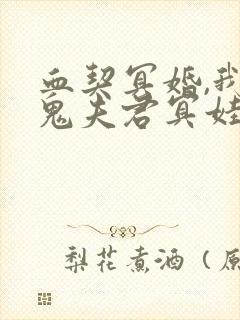 血契冥婚,我
鬼夫君冥娃
梨花煮酒（原